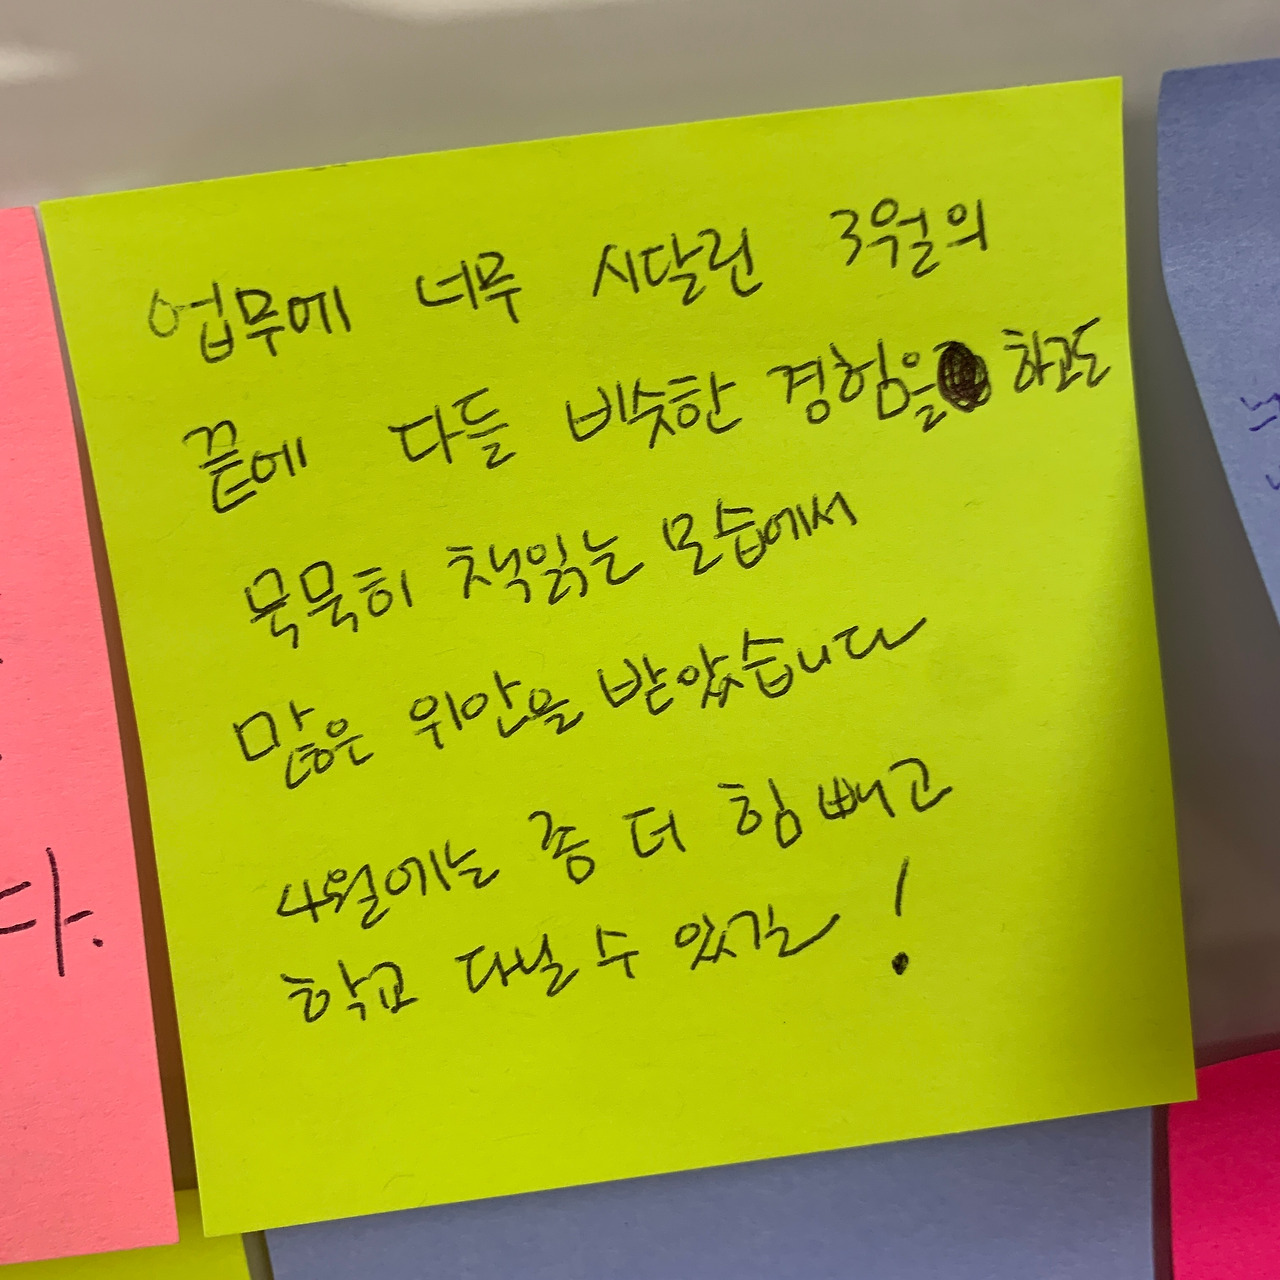 업무에 너무 시달린 3월의
끝에 다들 비슷한 경험을 하고도
묵묵히 책읽는 모습에서
많은 위안을 받았습니다
4월에는 좀 더 힘 빼고
학교 다닐 수 있길!
다.